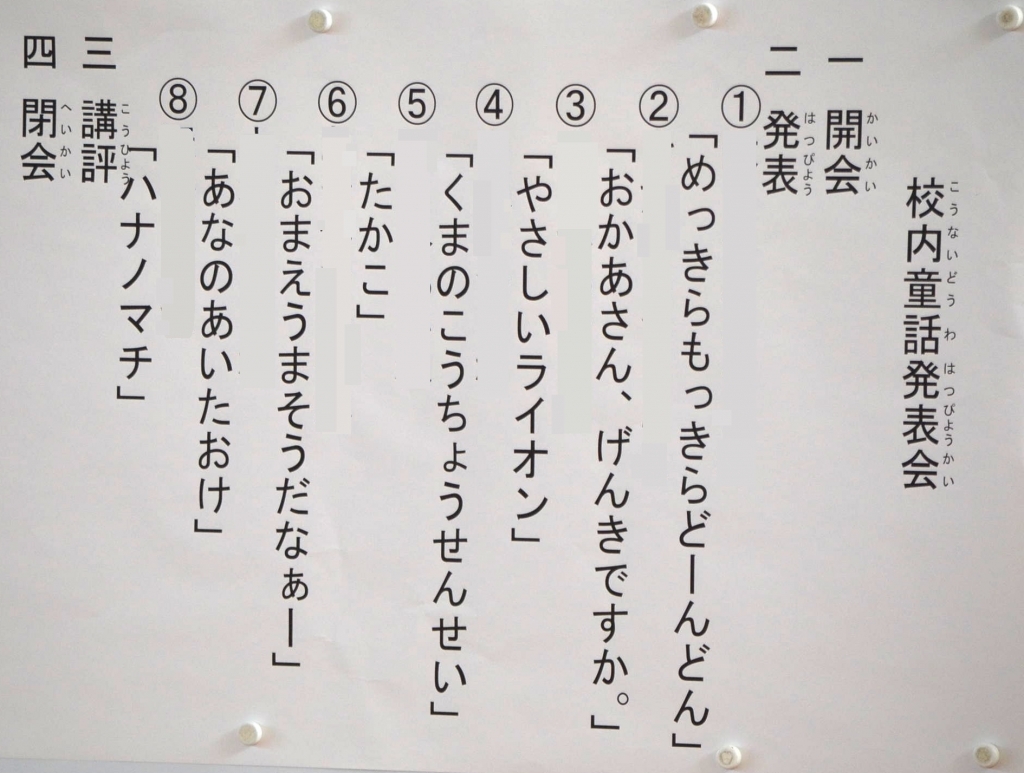 校内童話発表会
こうないどうわはっぴょうかい
一 開会
かいかい
二 発表
はっぴょう
① 「めっきらもっきらどーんどん」
② 「おかあさん、げんきですか。」
③ 「やさしいライオン」
④ 「くまのこうちょうせんせい」
⑤ 「たかこ」
⑥ 「おまえうまそうだなぁー」
⑦ 「あなのあいたおけ」
⑧ 「ハナノマチ」
三 講評
こうひょう
四 閉会
へいかい